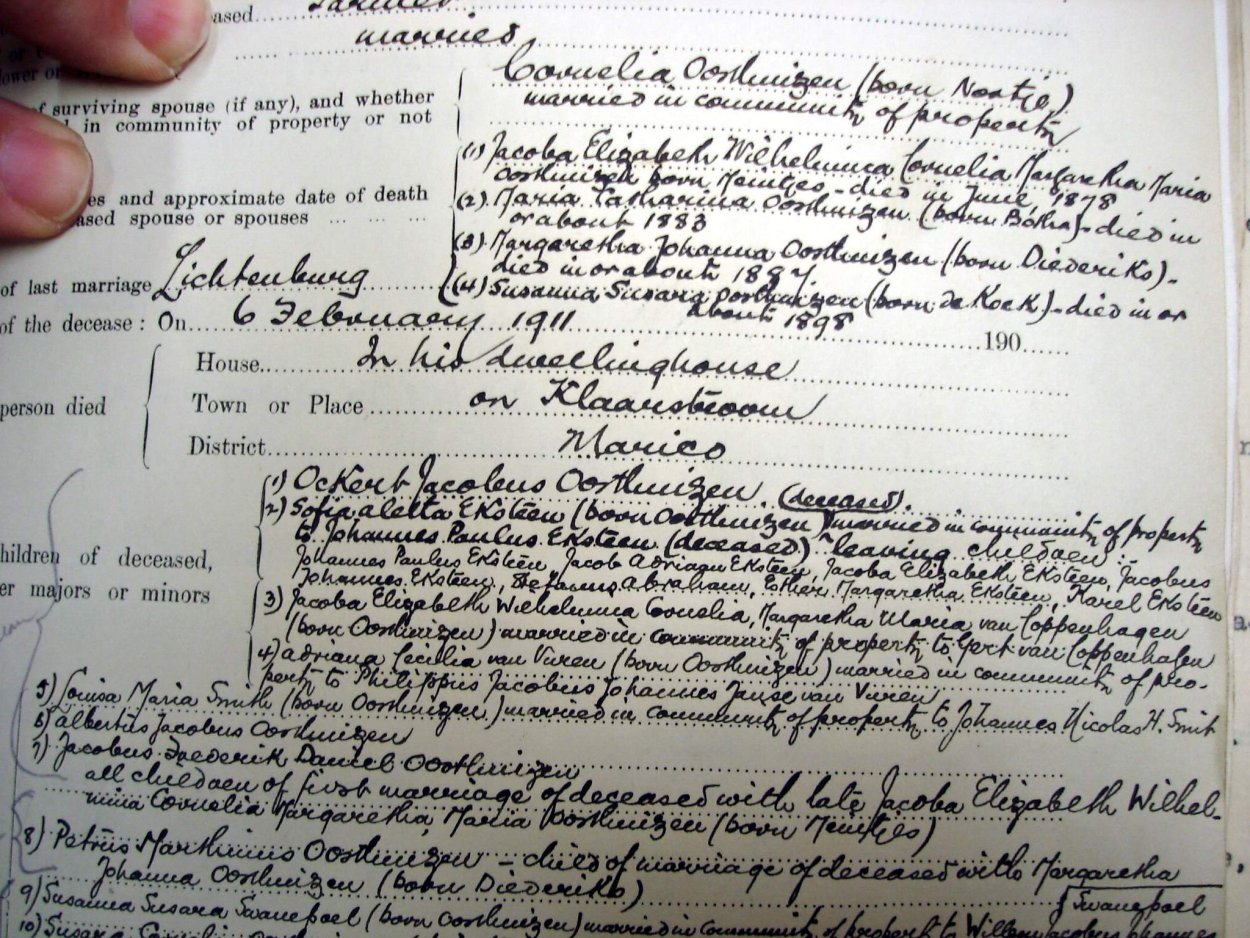 ased
married
of surviving spouse (if any), and whether
in community of property or not
Cornelia Oosthuizen (born Nortje)
married in community of property
es and approximate date of death
ased spouse or spouses
(1) Jacoba Elizabeth Wilhelmina Cornelia Margaretha Maria
Oosthuizen born Meintjes - died in June 1878
(2) Maria Catharina Oosthuizen (born Botha) - died in
or about 1883
(3) Margaretha Johanna Oosthuizen (born Diederiks) -
died in or about 1897
(4) Susanna Susara Oosthuizen (born de Kock) - died in or
about 1898
of last marriage Lichtenburg
of the decease: On 6 February 1911 190
person died
House In his dwellinghouse
Town or Place on Klaarstroom
District Marico
hildren of deceased,
er majors or minors
(1) Ockert Jacobus Oosthuizen (deceased).
2) Sofia Aletta Eksteen (born Oosthuizen) married in community of property
to Johannes Paulus Eksteen (deceased) leaving children:
Johannes Paulus Eksteen, Jacob Adriaan Eksteen, Jacoba Elizabeth Eksteen, Jacobus
Johannes Eksteen, Stefanus Abraham, Esther Margaretha Eksteen, Karel Eksteen
3) Jacoba Elizabeth Wilhelmina Cornelia, Margaretha Maria van Coppenhagen
(born Oosthuizen) married in community of property to Gert van Coppenhagen
4) Adriana Cecilia van Vuren (born Oosthuizen) married in community of pro-
perty to Philippus Jacobus Johannes Janse van Vuren
5) Louisa Maria Smith (born Oosthuizen) married in community of property to Johannes Nicolas H. Smit
6) Albertus Jacobus Oosthuizen
7) Jacobus Frederik Daniel Oosthuizen
all children of first marriage of deceased with late Jacoba Elizabeth Wilhel-
mina Cornelia Margaretha Maria Oosthuizen (born Meintjes)
8) Petrus Marthinus Oosthuizen - child of marriage of deceased with Margaretha
Johanna Oosthuizen (born Diederiks)
9) Susanna Susara Swanepoel (born Oosthuizen) married in community of property to Willem Jacobus Johannes
Swanepoel
10) Susara